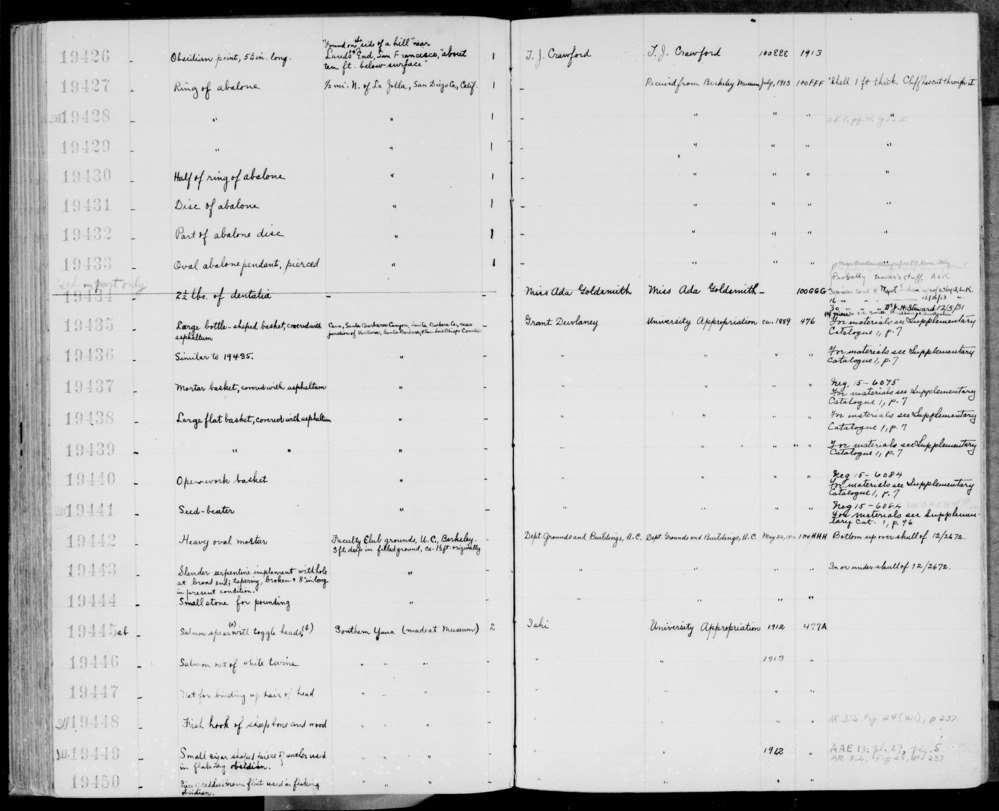 19426 - Obsidian point, 5½ in. long. "Found on the side of a hill" near Lands End, San Francisco, "about ten ft. below surface" 1 T. J. Crawford T. J. Crawford 100EEE 1913
19427 - Ring of abalone ½ mi. N. of La Jolla, San Diego Co., Calif. 1 - Received from Berkeley Museum July, 1913 100FFF "Shell 1 ft thick. Cliff is cut through it
19428 - " " 1 - " " "
19429 - " " 1 - " " "
19430 - Half of ring of abalone " 1 - " " "
19431 - Disc of abalone " 1 - " " "
19432 - Part of abalone disc " 1 - " " "
19433 - Oval abalone pendant, pierced " 1 - " " "
19434 - 2½ lbs. of dentalia - - Miss Ada Goldsmith Miss Ada Goldsmith - 100GGG Probably stuff, ALK
19435 - Large bottle-shaped basket, covered with asphaltum Cave, Santa Barbara Canyon, Santa Barbara Co., near junction of Ventura, Santa Barbara, Counties - Grant Dewlaney University Appropriation ca. 1889 476 For materials see Supplementary Catalogue 1, p. 7
19436 - Similar to 19435. " - " " " " For materials see Supplementary Catalogue 1, p. 7
19437 - Mortar basket, covered with asphaltum " - " " " " Neg. 15-6075
For materials see Supplementary Catalogue 1, p. 7
19438 - Large flat basket, covered with asphaltum " - " " " " For materials see Supplementary Catalogue 1, p. 7
19439 - " " " - " " " " For materials see Supplementary Catalogue 1, p. 7
19440 - Open-work basket " - " " " " Neg 15-6084
For materials see Supplementary Catalogue 1, p. 7
19441 - Seed-beater " - " " " " Neg 15-6084
For materials see Supplementary Cat. 1, p. 96
19442 - Heavy oval mortar Faculty Club grounds, U.C., Berkeley. 3 ft. deep in filled ground, ca. ft. originally - Dept. Grounds and Buildings, U.C. Dept. Grounds and Buildings, U.C. 100HHH Bottom up over skull of 12/2672.
19443 - Slender serpentine implement with hole at broad end; tapering, broken & 8 in long in present condition. " - " " " " In or under skull of 12/2672.
19444 - Small stone for pounding " - " " " "
19445ab - Salmon spear (a) with toggle heads (b) Southern Yana (made at Museum) 2 Ishi University Appropriation 1912 477A
19446 - Salmon net of white twine " " " - " " 1913 "
19447 - Net for binding up hair of head " " " - " " " "
19448 - Fish hook of sheep bone and wood " " " - " " " " p 237.
19449 - Small cigar shaped piece of used in flaking obsidian. " " " - " " 1912 " AAE 13: pl. 27, fig. 5
19450 - Piece reddish brown flint used in flaking obsidian. " " " - " " " "